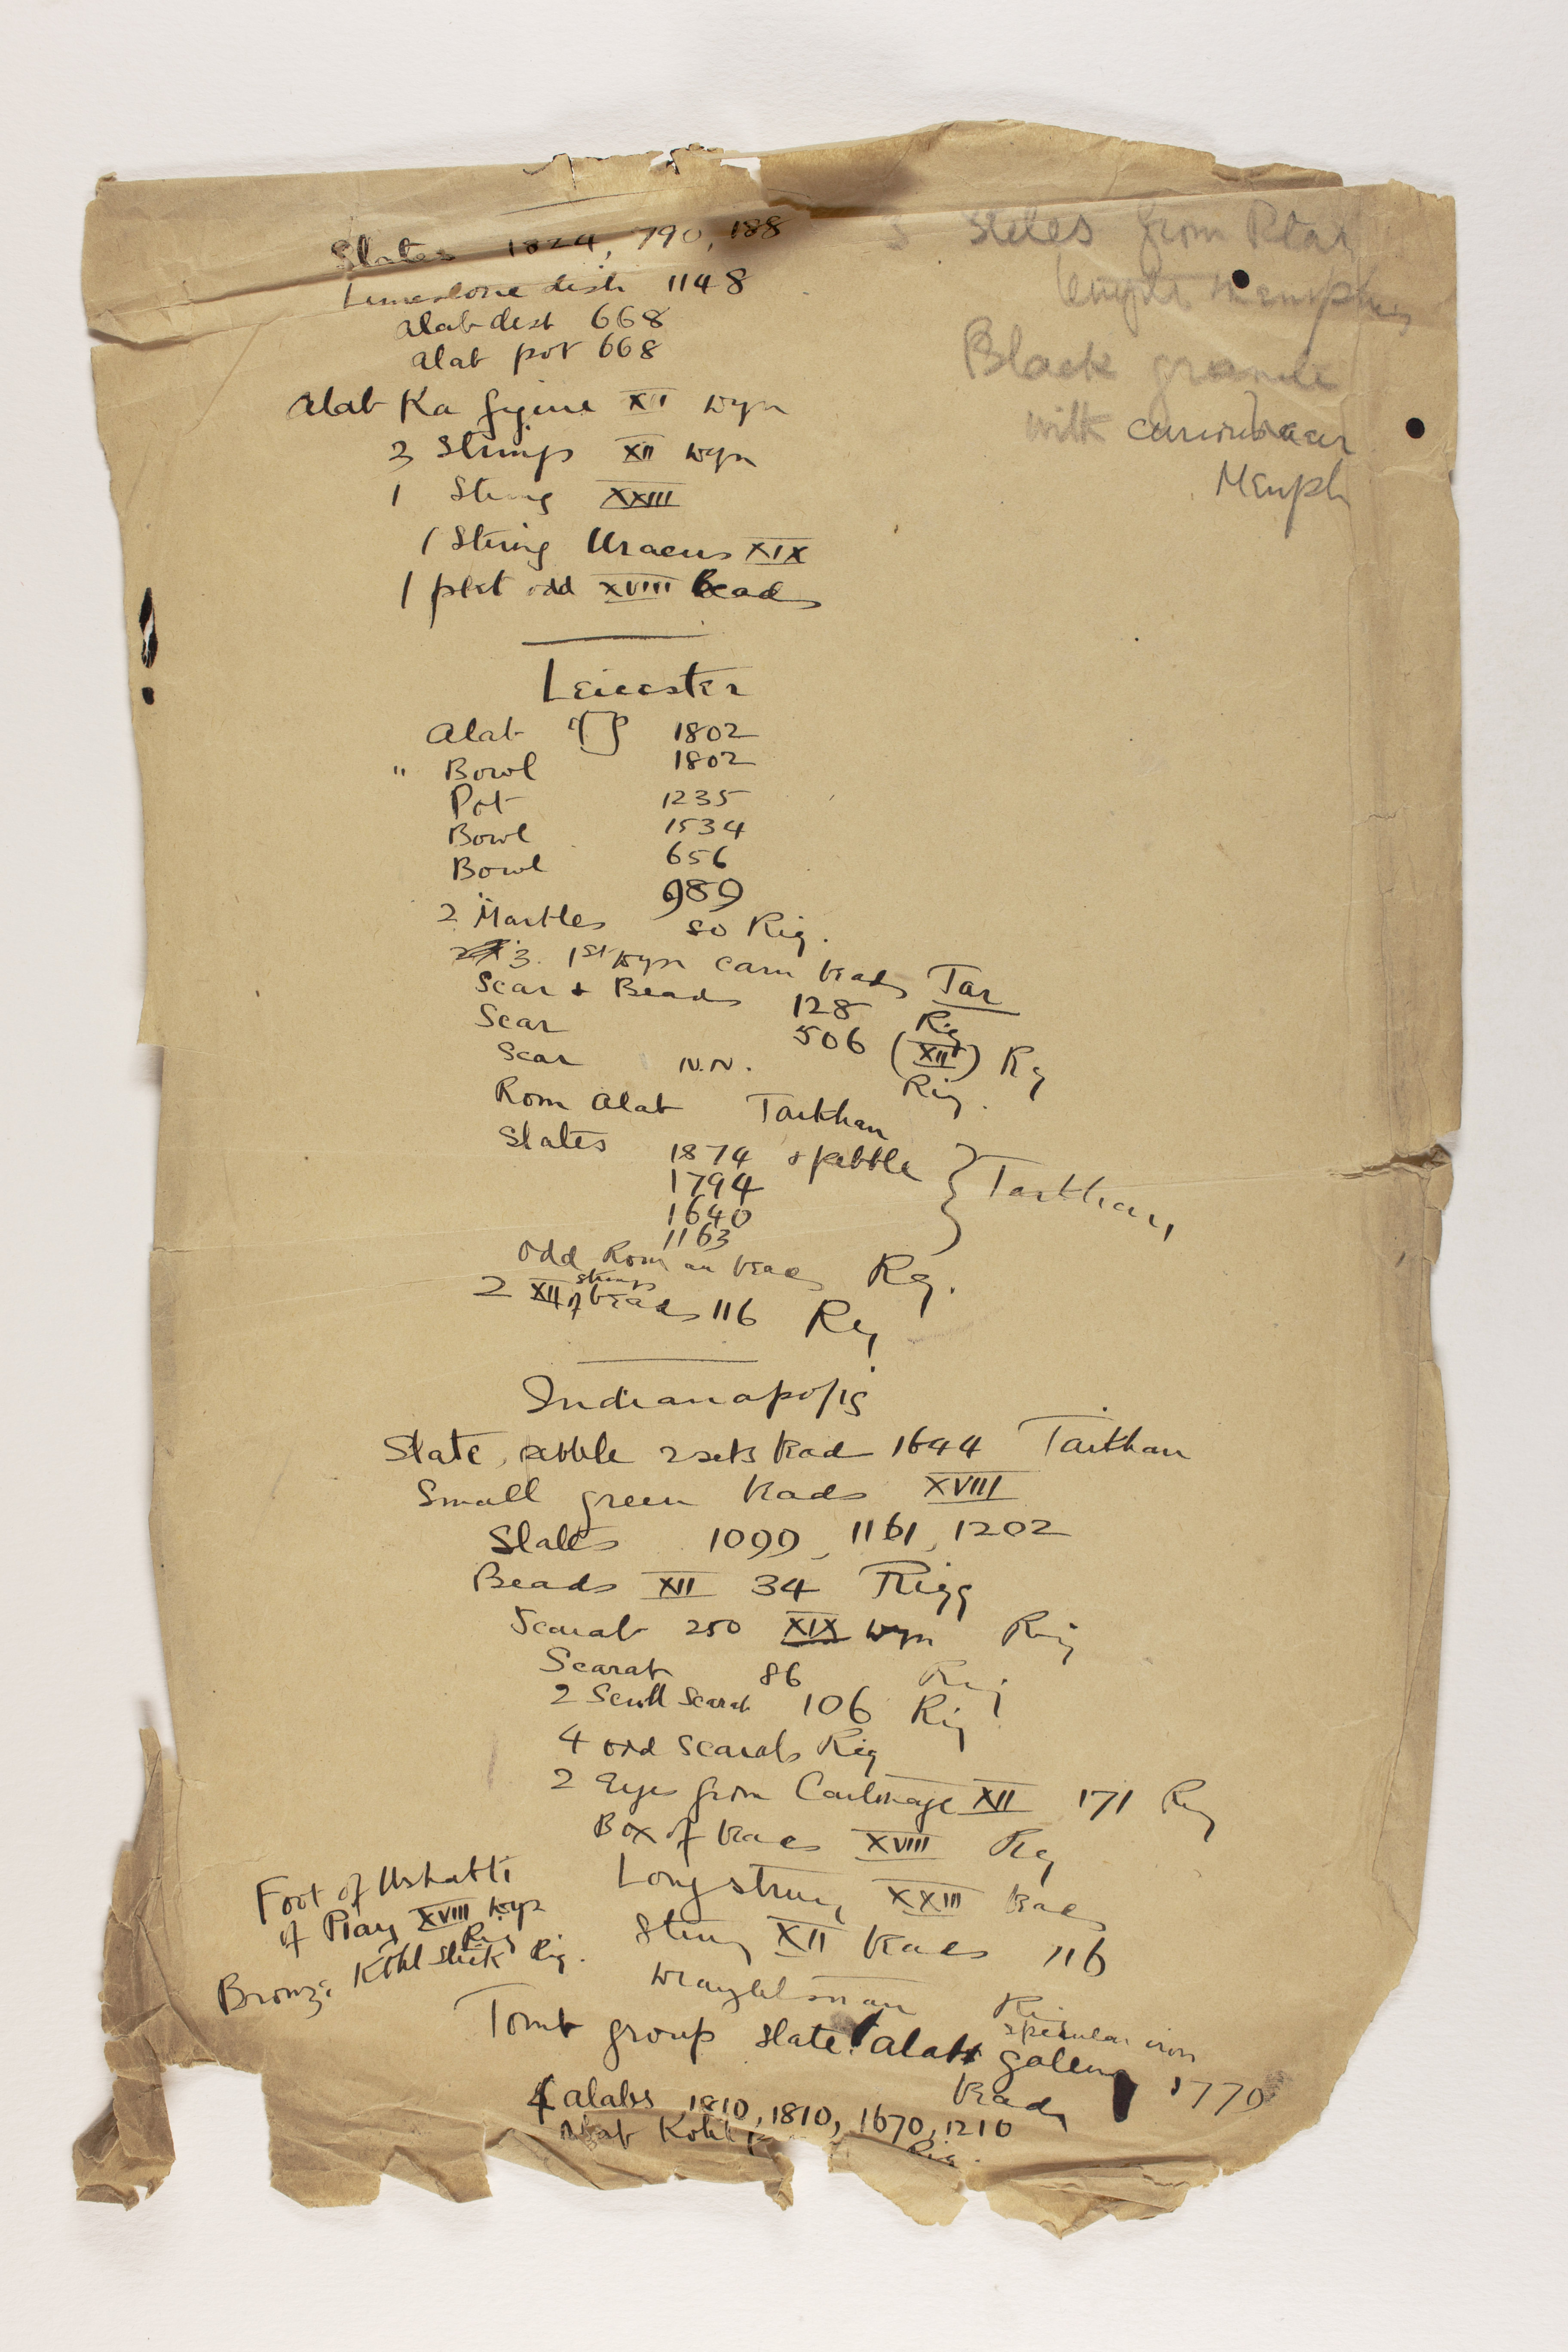 Slates 1824, 790, 188
Limestone dish 1148
Alab dish 668
Alab pot 668
Alab Ka figure XII Dyn
3 Strings XII Dyn
1 String XXIII
1 String Uraeus XIX
1 pkt odd XVIII beads
3 Steles from Ptah
temple Memphis
Black granite
with curious
Memph
Leicester
Alab 1802
" Bowl 1802
Pot 1235
Bowl 1534
Bowl 656
989
2 Marbles 80 Rig.
3. 1st Dyn carn beads Tar
Scar & Beads 128 Rig
Scar 506 (XII) Rq
Scar N.N. Riq.
Rom Alab Tarkhan
Slates 1874 & pebble
1794
1640
1163
} Tarkhan
Odd Roman beads Rq.
2 XII strings of beads 116 Rq
Indianapolis
Slate, pebble 2 sets bead 1644 Tarkhan
Small green beads XVIII
Slates 1099, 1161, 1202
Beads XII 34 Riqq
Scarab 250 XIX Dyn Riq
Scarab 86 Riq
2 Scroll Scarab 106 Riq
4 odd Scarabs Riq
2 Eyes from Cartonage XII 171 Riq
Box of beads XVIII Rq
Long string XXIII beads
String XII beads 116
Foot of Ushabti
of Piay XVIII Dyn
Riq
Bronze Kohl stick Riq.
Tomb group slate, alab galena 1770
specular iron
beads
4 alabs 1810, 1810, 1670, 1210
Alab Kohl
Riq.